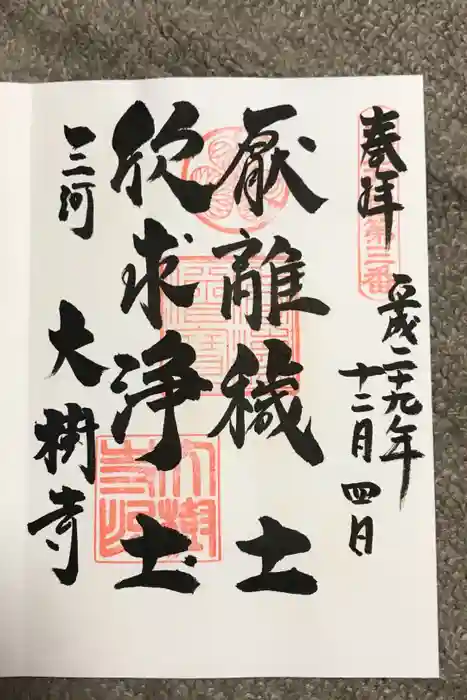 奉拝
第二番
平成二十九年
十二月四日
厭離穢土
欣求浄土
三河
大樹寺